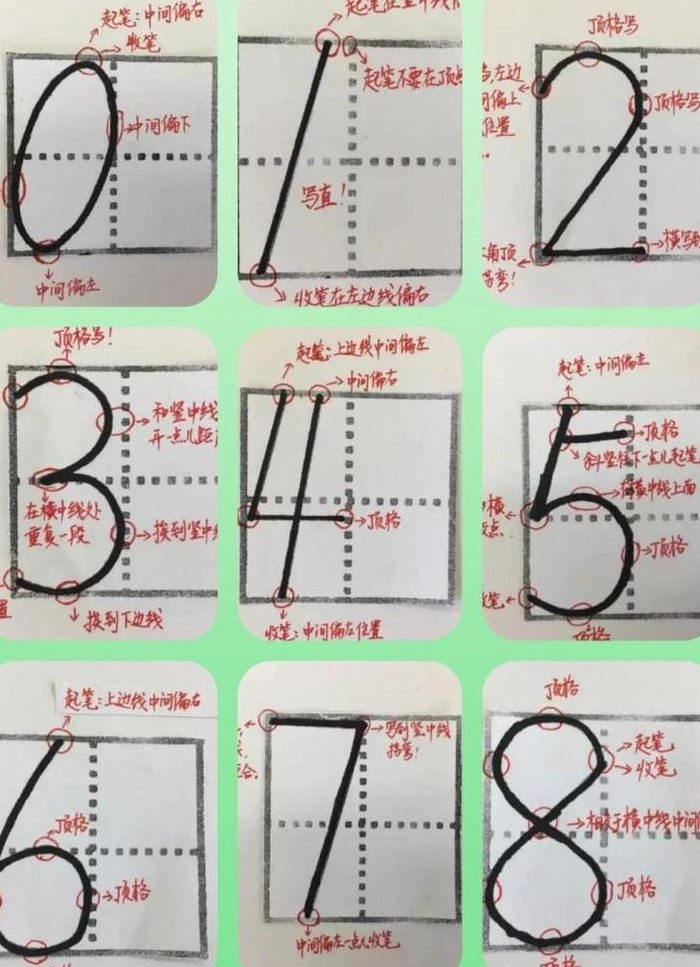 起笔:中间偏右
收笔
中间偏下
中间偏左
0
起笔不要在顶
写直!
收笔在左边线偏右
1
顶格写
左边
偏上
位置
顶格写
横写
角顶
弯!
2
顶格写!
和竖中线
开一点儿距
在横中线处
重复一段
挨到竖中
挨到下边线
3
起笔:上边线中间偏左
中间偏右
顶格
收笔:中间偏左位置
4
起笔:中间偏左
顶格
斜竖往下一点儿起笔
横中线上面
顶格
顶格
5
起笔:上边线中间偏右
顶格
顶格
6
写到竖中线
拐弯!
中间偏左一点儿收笔
7
顶格
起笔
收笔
相交于横中线中间
顶格
顶格
8